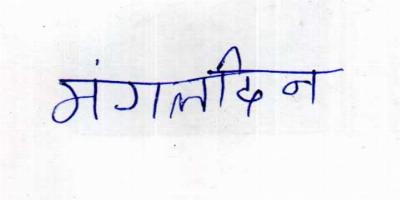 मंगलदिन